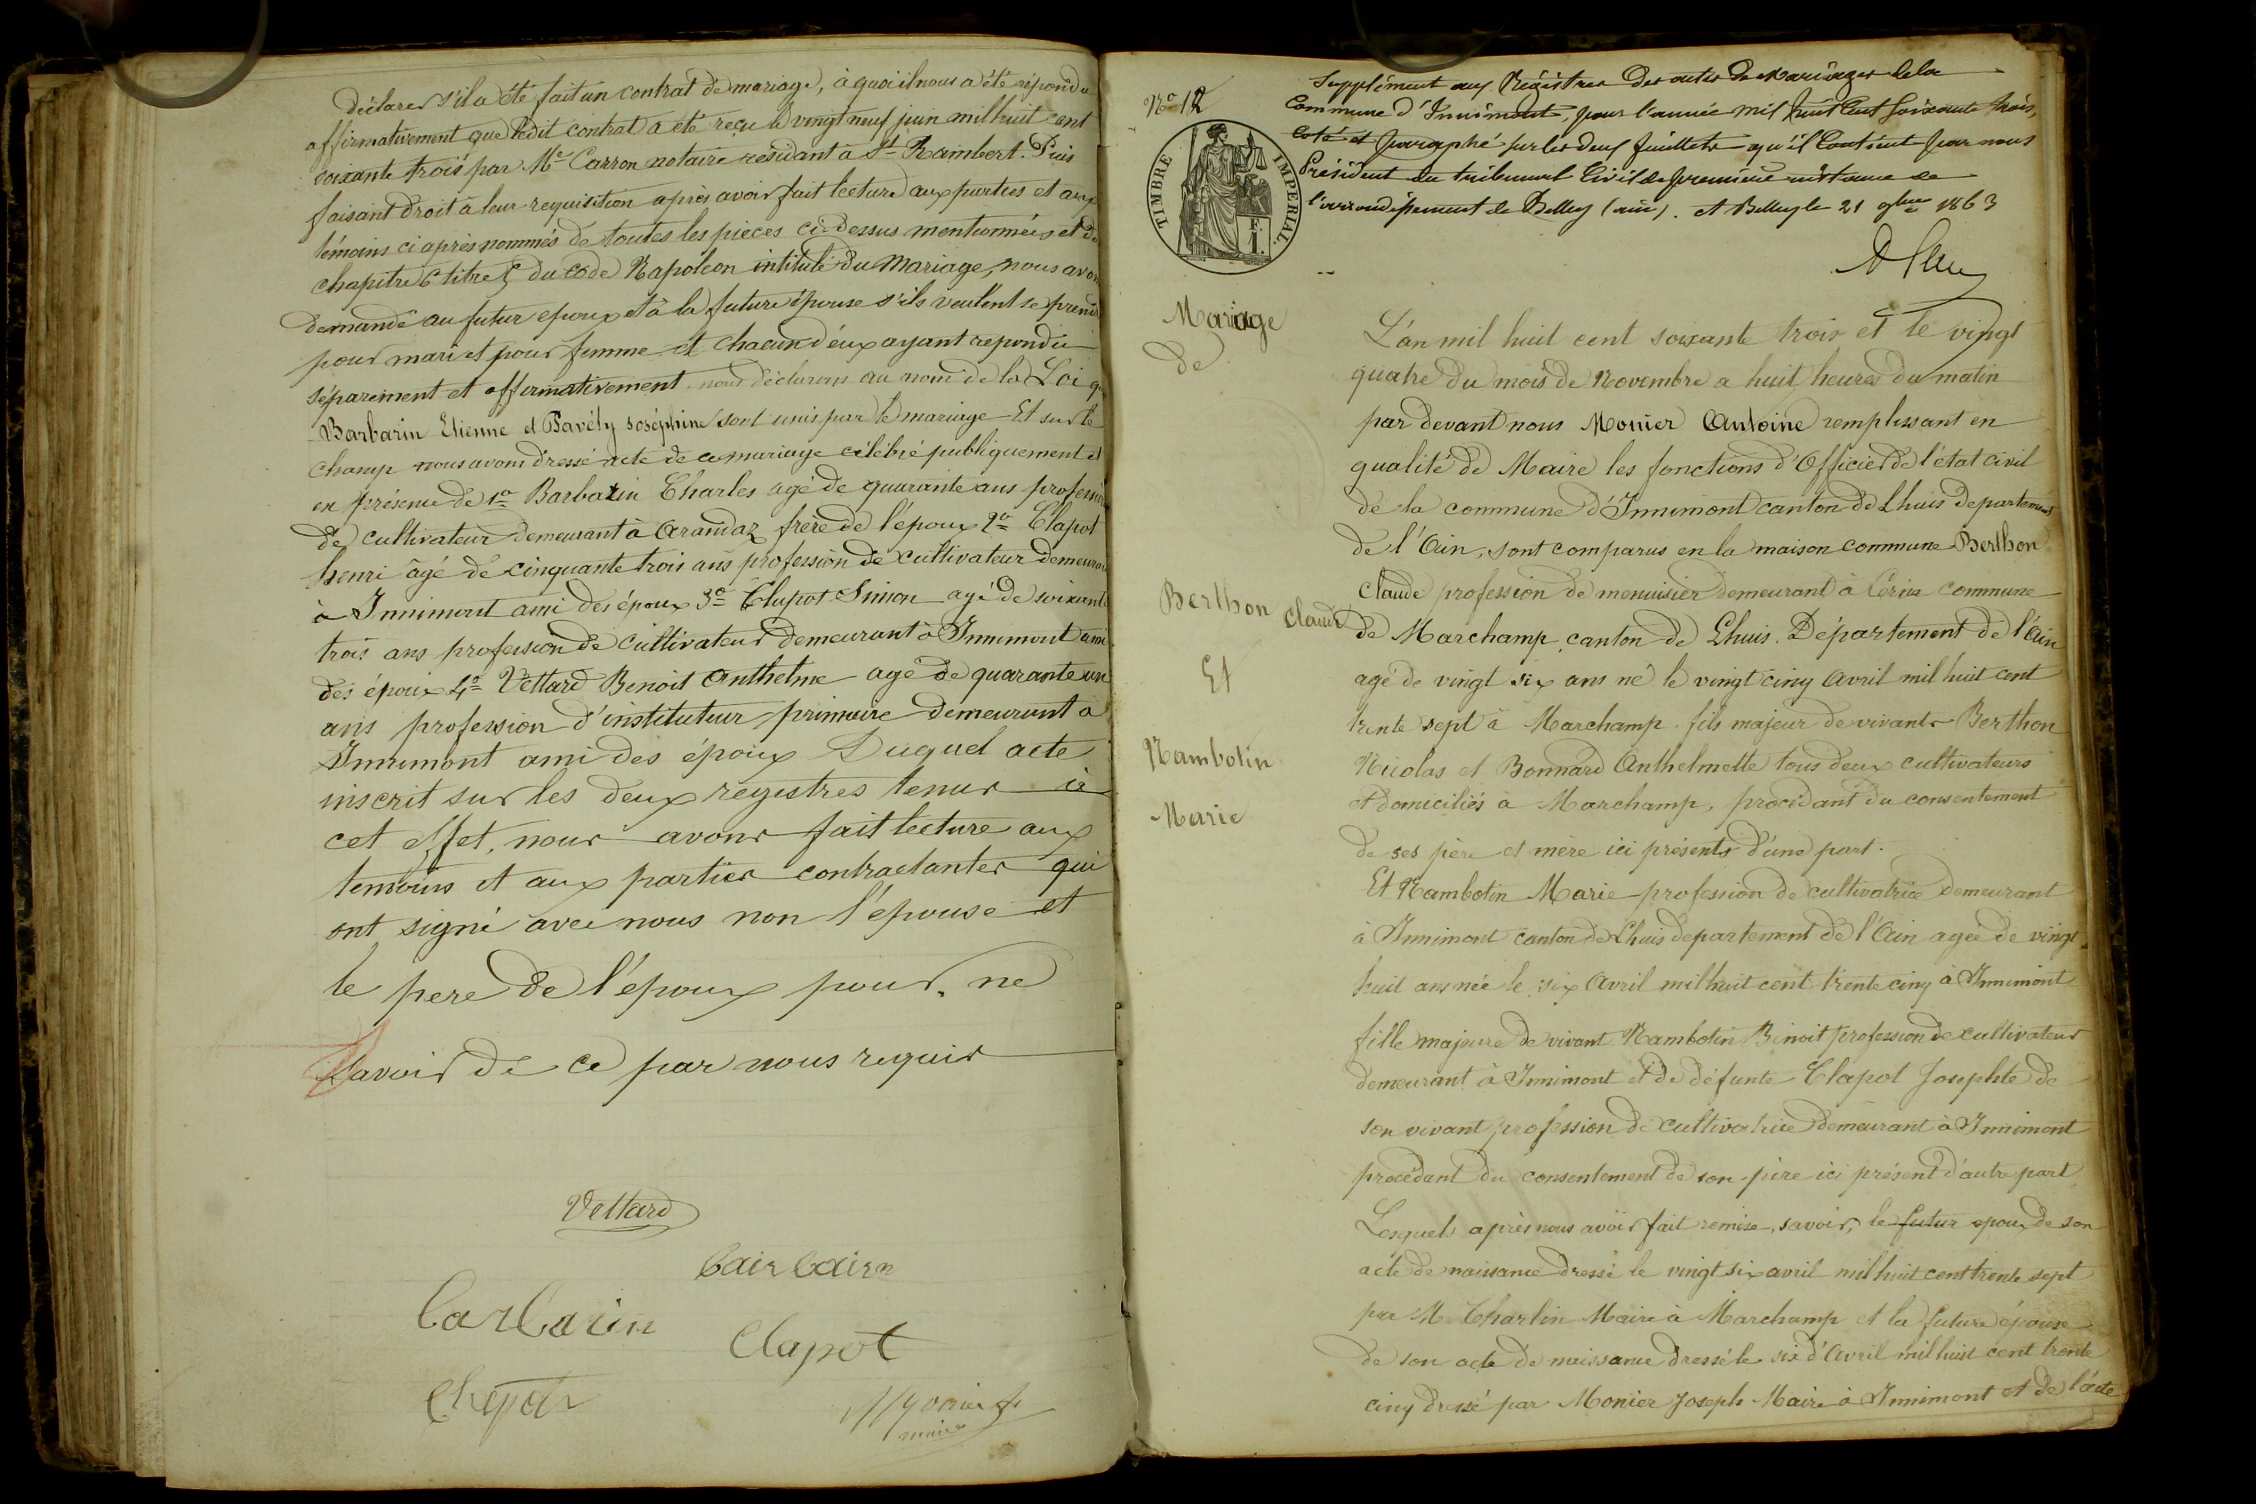 déclarer s'il a été fait un contrat de mariage, à quoi il nous a été répondu
affirmativement que ledit contrat a été reçu le vingt neuf juin mil huit cent
soixante trois par Me Carron notaire résidant à St Rambert. Puis
faisant droit à leur requisition après avoir fait lecture aux parties et aux
témoins ci après nommés de toutes les pièces ci-dessus mentionnées et du
chapitre 6 titre 5 du code Napoléon intitulé du Mariage, nous avons
demandé au futur epoux et à la future épouse s'ils veulent se prendre
pour mari et pour femme et chacun d'eux ayant repondu
séparement et affirmativement nous déclarons au nom de la Loi que
Barbarin Etienne et Pavély Joséphine sont unis par le mariage Et sur le
champ nous avons dressé acte de ce mariage célébré publiquement et
en présence de 1o Barbarin Charles agé de quarante ans profession
de cultivateur demeurant à Arandaz frère de l'époux 2o Clapot
henri âgé de cinquante trois ans profession de cultivateur demeurant
à Innimont ami des époux 3o Clapot Simon agé de soixante
trois ans profession de cultivateur demeurant à Innimont ami
des époux 4o Vettard Benoit Anthelme agé de quarante un
ans profession d'instituteur primaire demeurant à
Innimont ami des époux Duquel acte
inscrit sur les deux registres tenus à
cet effet, nous avons fait lecture aux
temoins et aux parties contractantes qui
ont signé avec nous non l'épouse et
le pere de l'époux pour ne
savoir de ce par nous requis
Vettard
Barbarin
Barbarin
Clapot
Clapot
Monier
maire
No 12
Supplément aux Régistres des actes de Mariages de la
Commune d'Innimont, pour l'année mil huit Cent Soixante trois,
Coté et paraphé sur les deux feuillets qu'il Contient par nous
Président du tribunal Civil de première instance de
l'arrondissement de Belley (ain). et Belley le 21 9bre 1863
TIMBRE IMPERIAL.
1 F.
Mariage
de
Berthon Claude
Et
Nambotin
Marie
L'an mil huit cent soixante trois et le vingt
quatre du mois de Novembre a huit heures du matin
par devant nous Monier Antoine remplissant en
qualité de Maire les fonctions d'Officier de l'état civil
de la commune d'Innimont canton de Lhuis departement
de l'Ain, sont comparus en la maison commune Berthon
Claude profession de menuisier demeurant à Cérin commune
de Marchamp canton de Lhuis. Département de l'Ain
agé de vingt six ans né le vingt cinq Avril mil huit cent
trente sept à Marchamp fils majeur de vivants Berthon
Nicolas et Bonnard Anthelmette tous deux cultivateurs
et domiciliés à Marchamp, procédant du consentement
de ses père et mère ici présents d'une part.
Et Nambotin Marie profession de cultivatrice demeurant
à Innimont canton de Lhuis departement de l'Ain agée de vingt
huit ans née le six Avril mil huit cent trente cinq à Innimont
fille majeure de vivant Nambotin Benoit profession de cultivateur
demeurant à Innimont et de défunte Clapot Josephte de
son vivant profession de cultivatrice demeurant à Innimont
procédant du consentement de son père ici présent d'autre part
Lesquels après nous avoir fait remise, savoir, le futur epoux de son
acte de naissance dressé le vingt six avril mil huit cent trente sept
par M. Charlin Maire à Marchamp et la future épouse
de son acte de naissance dressé le six d'Avril mil huit cent trente
cinq dressé par Monier Joseph Maire à Innimont et de l'acte